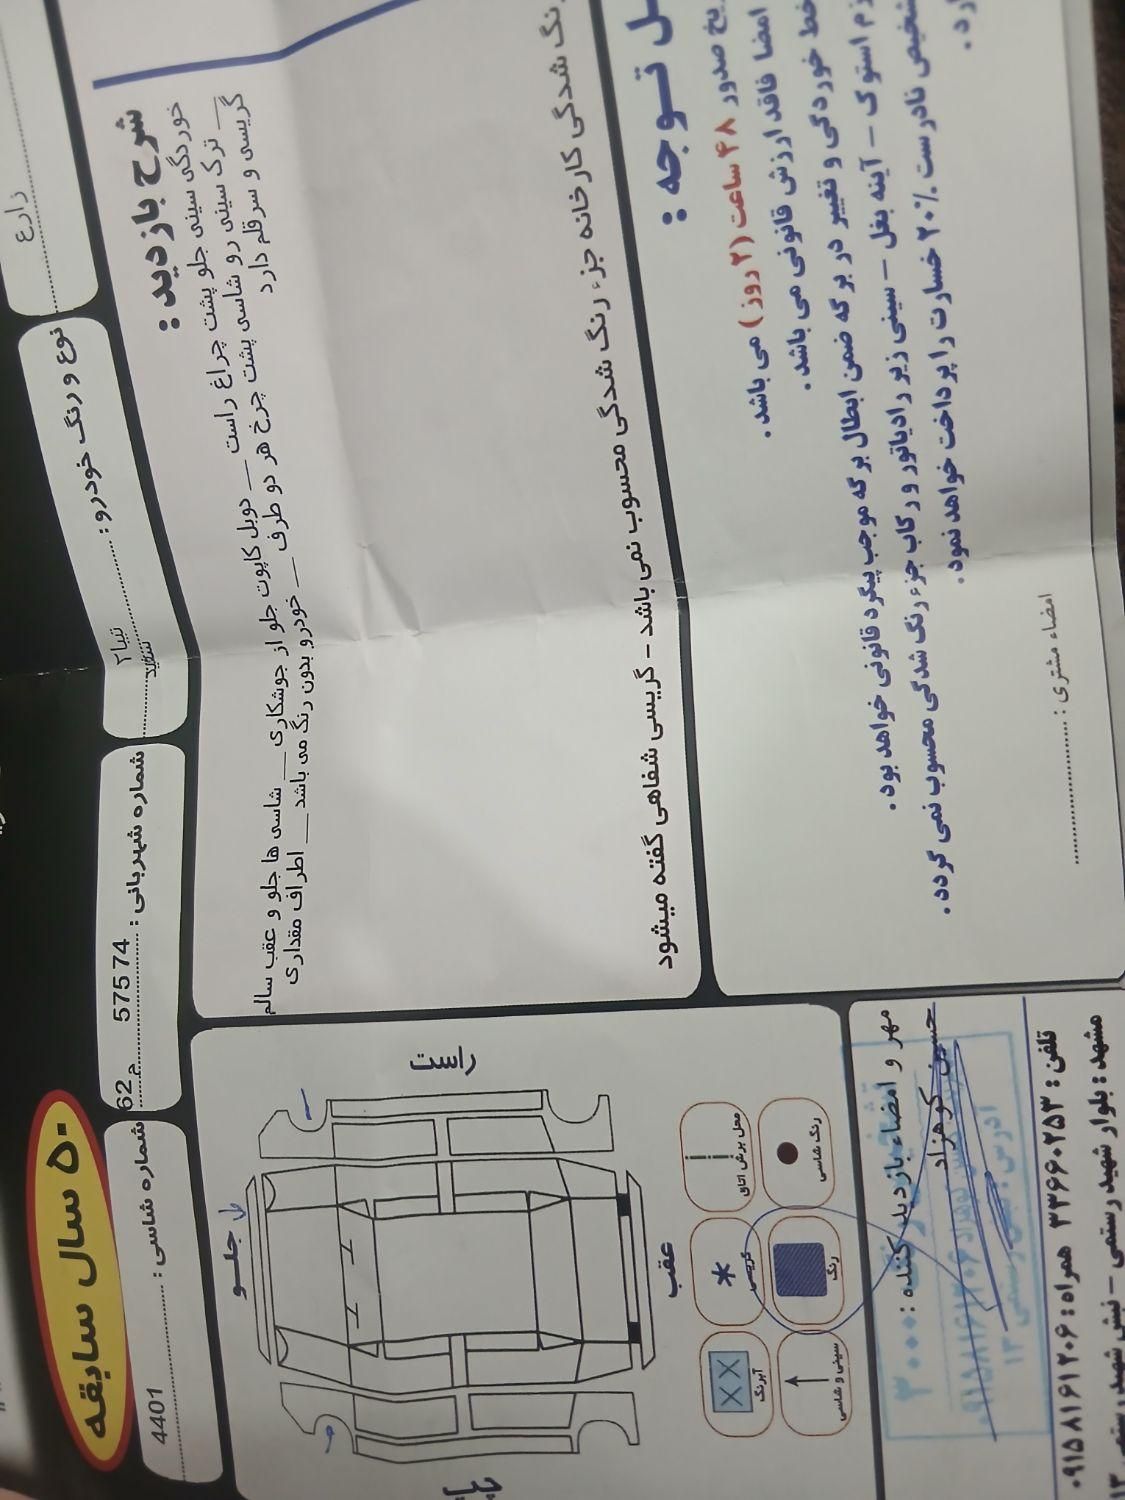 ۵۰ سال سابقه
نوع و رنگ خودرو :
تیبا۲
سفید
شماره شهربانی :
57574 ج 62
شماره شاسی :
4401
شرح بازدید :
خوردگی سینی جلو پشت چراغ راست __ دوبل کاپوت جلو از جوشکاری __ شاسی ها جلو و عقب سالم
__ ترک سینی رو شاسی پشت چرخ هر دو طرف __ خودرو بدون رنگ می باشد __ اطراف مقداری
گریسی و سرقلم دارد
رنگ شدگی کارخانه جزء رنگ شدگی محسوب نمی باشد - گریسی شفاهی گفته میشود
توجه :
صدور ۴۸ ساعت (۲ روز) می باشد .
امضا فاقد ارزش قانونی می باشد .
خط خوردگی و تغییر در برگه ضمن ابطال برگه موجب پیگرد قانونی خواهد بود .
استوک - آینه بغل - سینی زیر رادیاتور و رکاب جزء رنگ شدگی محسوب نمی گردد .
نادرست ۲۰٪ خسارت را پرداخت خواهد نمود .
امضاء مشتری :
راست
جلو
عقب
محل برش اتاق
گریسی
آبرنگ
رنگ شاسی
رنگ
سینی و شاسی
مهر و امضاء بازدید کننده :
حسین کوهزاد
۰۹۱۵۸۱۶۱۲۰۶
تلفن : ۳۳۶۶۰۲۵۳ همراه : ۰۹۱۵۸۱۶۱۲۰۶
مشهد : بلوار شهید رستمی - نبش شهید رستمی ۱۳